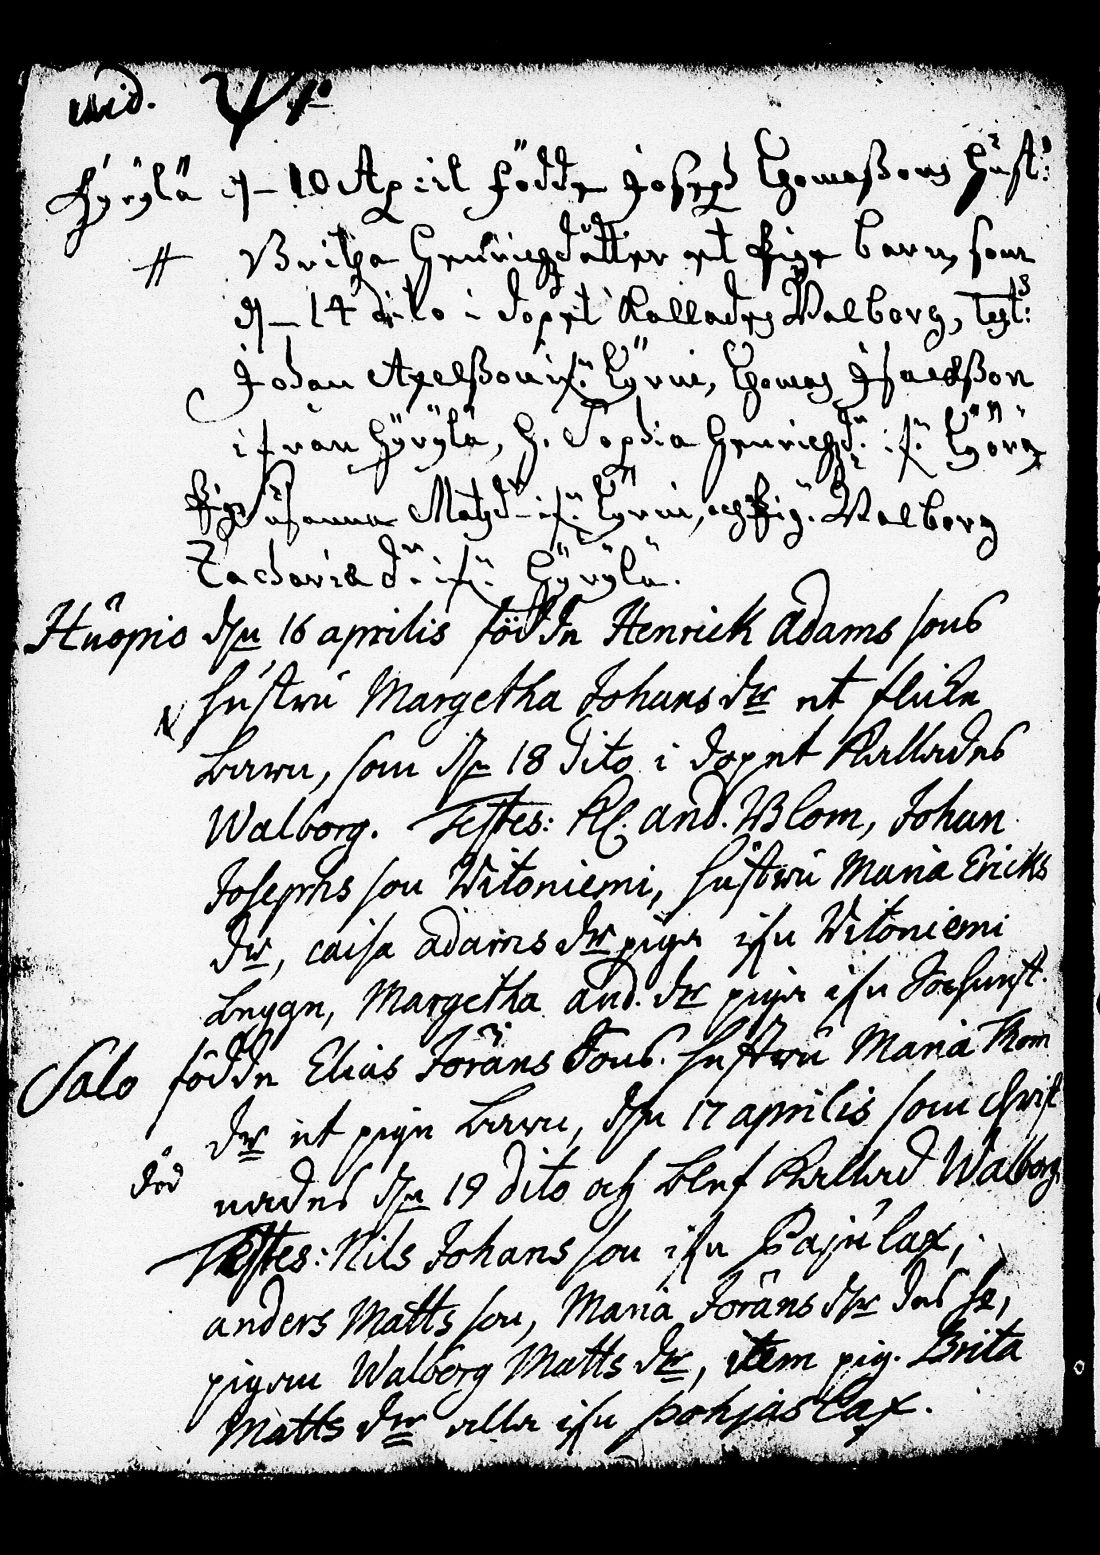 Hyrylä d– 10 April födde Joseph Thomaßons Hust:
Britha Henrichsdotter et Pige barn, som
d– 14 dito i dopet kallades Walborg, Test:
Johan Axelßon ifr: Kyrni, Thomas Isackßon
ifrån Hyrylä, H. Sophia Henrichsdr. ifr:
Pig. Susanna Matzdr ifr: Kyrni, och Pig. Walborg
Zacharia dr. ifr: Hyrylä.
Huopio den 16 aprilis födde Henrick adams sons
hustru Margetha Johans dr et flicke
barn, som den 18 dito i dopet kallades
Walborg. Testes: Kl. and. Blom, Johan
Josephs son Witoniemi, hustru Maria Ericks
dr, caisa adams dr piga ifrn Witoniemi
by, Margetha and. dr piga ifrn
Salo födde Elias Jörans Sons. hustru Maria Thom
dr et pige barn, den 17 aprilis som christ
nades den 19 dito och blef kallad Walborg
död
Testes: Nils Johans son ifrn Pajulax,
anders Matts son, Maria Jörans dr des h,
pigan Walborg Matts dr, item pig. Brita
Matts dr alla ifrn pohjaslax.